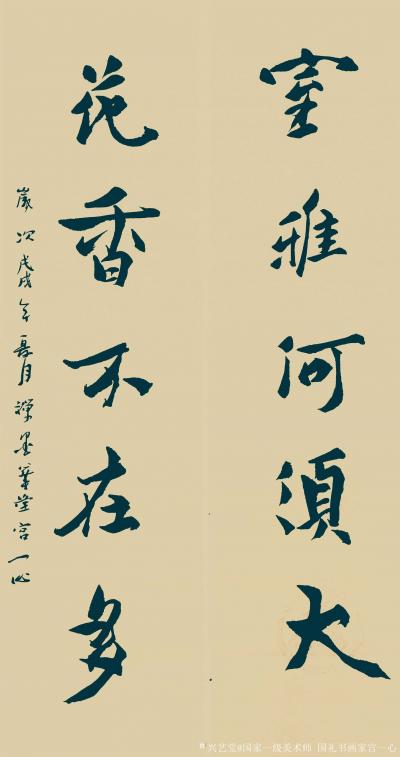 室雅何須大
花香不在多
歲次戊戌年夏月禪墨筆堂宮一心
兴艺堂@国家一级美术师 国礼书画家宫一心